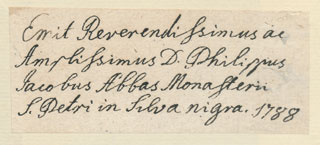 Emit Reverendissimus ac
Amplissimus D. Philippus
Jacobus Abbas Monasterii
S. Petri in Silva nigra. 1788